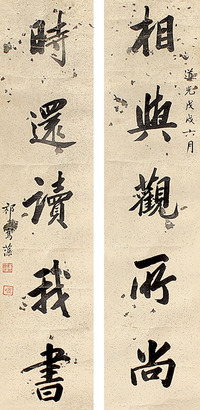 相與觀所尚
道光戊戌六月
時還讀我書
祁寯藻